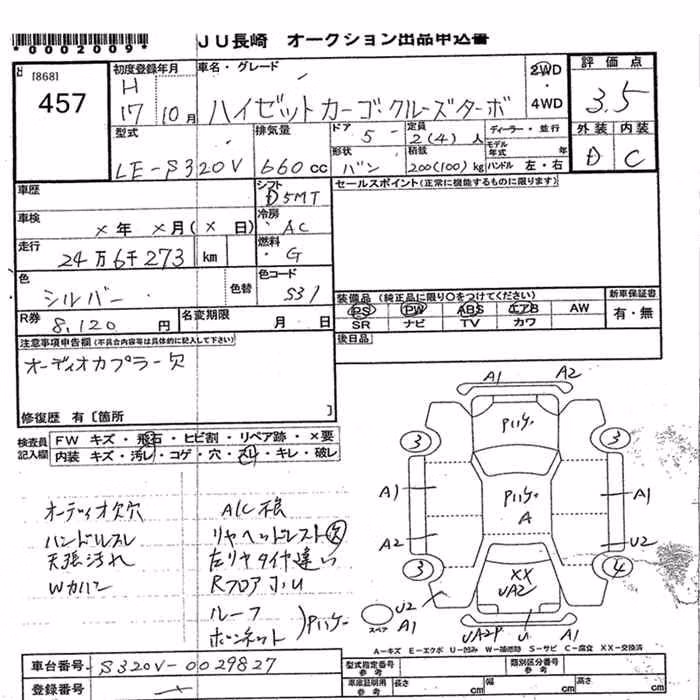 *0002009*
JU長崎 オークション出品申込書
[868]
457
初度登録年月
H
17 10月
車名・グレード
ハイゼットカーゴ.クルーズターボ
2WD
・
4WD
評価点
3.5
外装 内装
D C
型式
LE-S320V
排気量
660cc
ドア
5
定員
2(4)人
ディーラー・並行
モデル年式 年
形状
バン
積載
200(100)kg
ハンドル 左・右
車歴
シフト
D 5MT
セールスポイント(正常に機能するものに限ります)
車検
×年 ×月(×日)
冷房
AC
走行
24万6千273 km
燃料
・G
色
シルバー
色替
色コード
S31
装備品 (純正品に限り○をつけてください)
新車保証書
PS PW ABS エアB AW
有・無
SR ナビ TV カワ
R券
8,120円
名変期限
月 日
後日品
注意事項申告欄(不具合内容等は具体的に記入して下さい)
オーディオカプラー欠
修復歴 有〔箇所 〕
検査員
記入欄
FW キズ・飛石・ヒビ割・リペア跡・×要
内装 キズ・汚レ・コゲ・穴・スレ・キレ・破レ
オーディオ欠欠
ハンドルスレ
天張汚れ
Wカバン
A/C
リヤヘッドレスト欠
左リヤタイヤ違い
Rフロア U
ルーフ
ボンネット
A1 A2
3 3
A1 A
A1
A2 U2
3 4
XX
UA2
U2
A1
スペア
UA2P U A1
A-キズ E-エクボ U-凹み W-補修跡 S-サビ C-腐食 XX-交換済
車台番号
S320V-0029827
登録番号
型式指定番号
参考
類別区分番号
参考
車庫証明用
参考
長さ cm
幅 cm
高さ cm